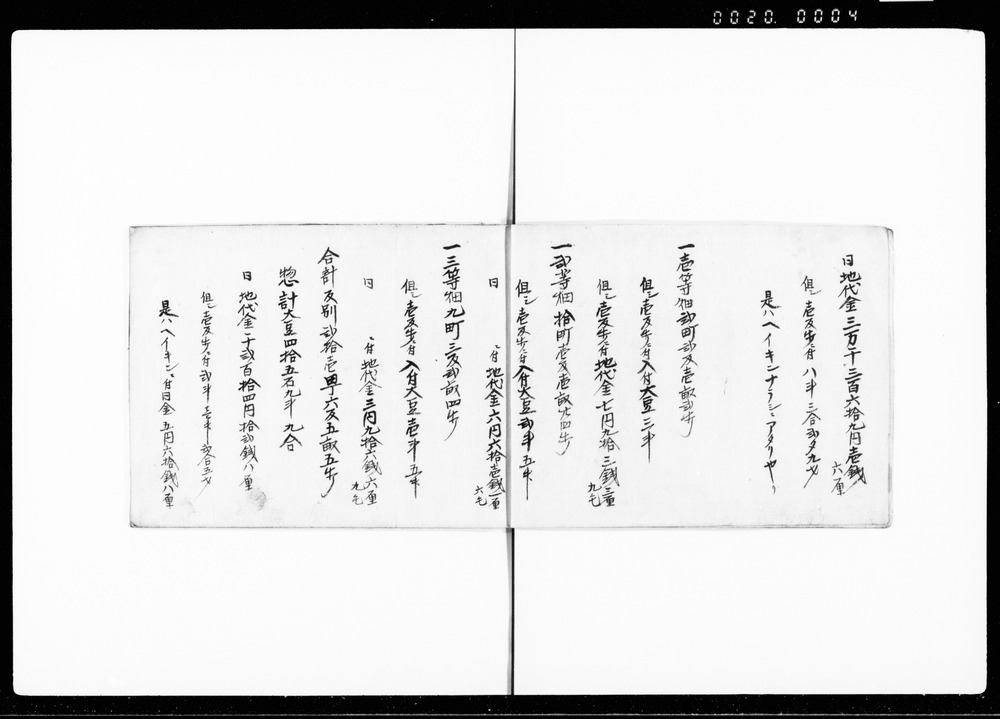 0020. 0004
〆地代金三万千三百六拾九円壱銭六厘
但シ壱反歩ニ付八斗三合弐夕九才
是ハヘイキンナラシニアタリヤリ
一壱等畑弐町弐反壱畝弐歩
但シ壱反歩ニ付入付大豆三斗
但シ壱反歩ニ付地代金七円九拾三銭三厘九毛
一弐等畑拾町壱反壱畝廿四歩
但シ壱反歩ニ付入付大豆弐斗五升
同 〃付地代金六円六拾壱銭一厘六毛
一三等畑九町三反弐畝四歩
但シ壱反歩ニ付入付大豆壱斗五升
同 〃付地代金三円九拾六銭六厘九毛
合計反別弐拾壱町六反五畝五歩
惣計大豆四拾五石九斗九合
同地代金千弐百拾四円拾弐銭八厘
但シ壱反歩ニ付弐斗壱升弐合五才
是ハヘイキンニ付同金五円六拾銭八厘